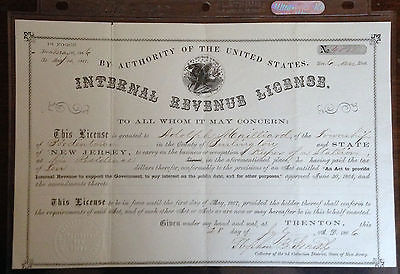 IN FORCE
To May 1st, 1867.
No.
BY AUTHORITY OF THE UNITED STATES.
INTERNAL REVENUE LICENSE.
TO ALL WHOM IT MAY CONCERN:
This License is granted to Adolph Mailliard, of the Township
of Bordentown in the County of Burlington and STATE
of NEW JERSEY, to carry on the business or occupation of
in aforesaid, he having paid the tax of
Ten dollars therefor, conformably to the provisions of an Act entitled "An Act to provide
Internal Revenue to support the Government, to pay interest on the public debt, and for other purposes," approved June 30, 1864, and
the amendments thereto.
This License to be in force until the first day of May, 1867, provided the said person shall conform to the
requirements of said Act, and of such other Act or Acts as are now or may hereafter be in this behalf enacted.
Given under my hand and seal at TRENTON, this
28 day of A. D. 1866
Collector of the 2d Collection District, State of New Jersey.